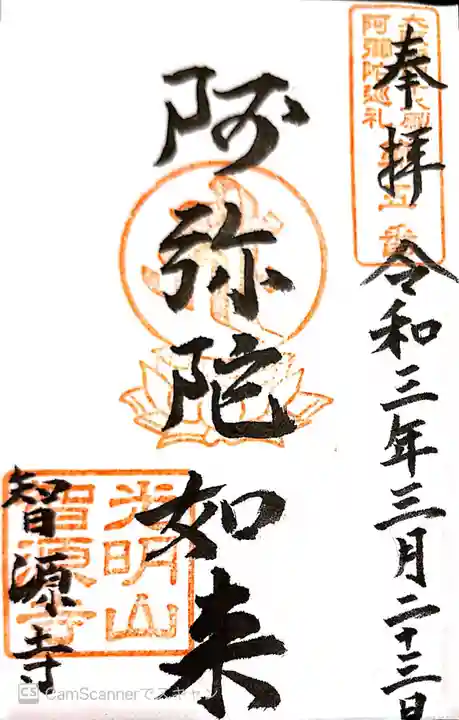 奉拝
令和三年三月二十三日
阿弥陀巡礼
阿弥陀如来
光明山
智源寺
智源寺
CS CamScannerでスキャン